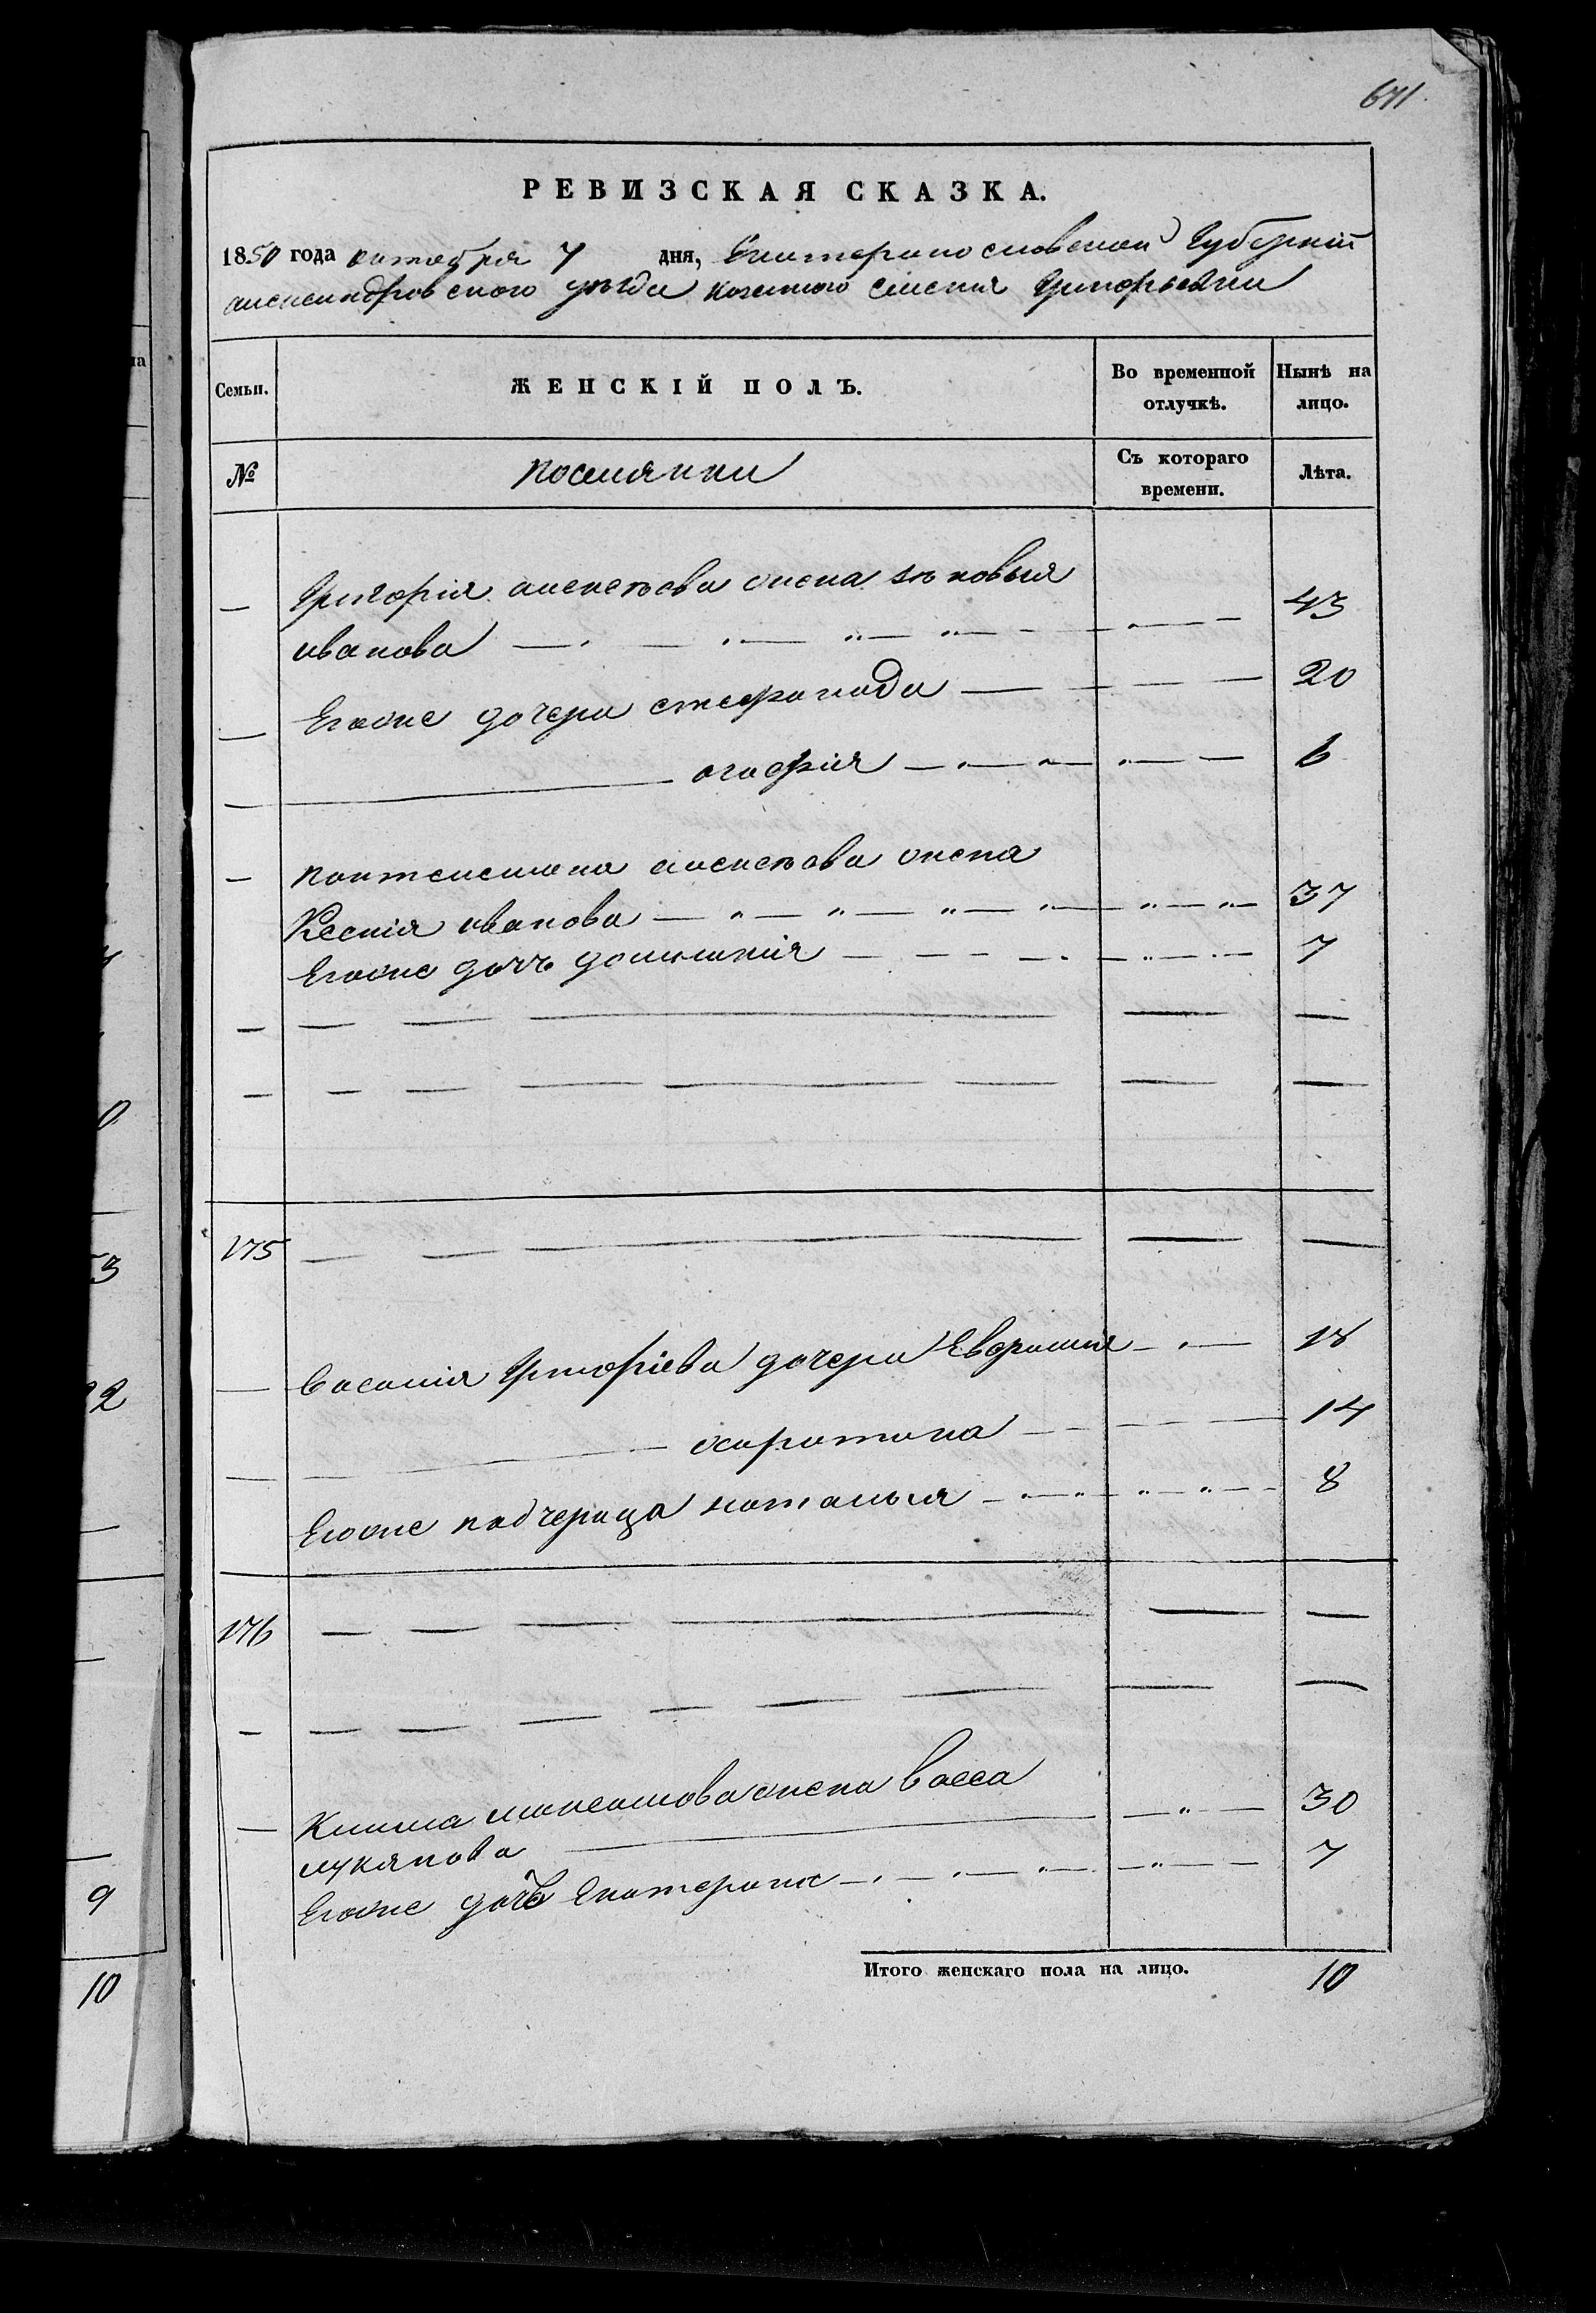 671.
РЕВИЗСКАЯ СКАЗКА.
1850 года октября 7 дня, Екатеринославской Губерніи
александровского уезда казенного селения Григорьевки
Семьи. ЖЕНСКІЙ ПОЛЪ. Во временной отлучкѣ. Нынѣ на лицо.
№ поселянки Съ котораго времени. Лѣта.
— Григорія алексѣева жена
иванова 43
— Егоже дочери степанида 20
— агафія 6
— пантелеимона алексѣева жена
Ксенія иванова 37
Егоже дочь 7
175
— Василия Григоріева дочери Евфросинія 18
14
Егоже падчерица наталья 8
176
— Клима жена васса
лукянова 30
Егоже дочь Екатерина 7
Итого женскаго пола на лицо. 10
на
0
53
22
9
10